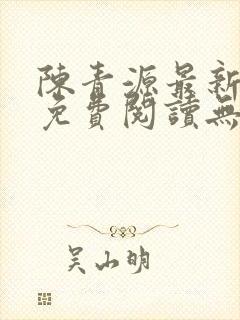 陳青源最新
免費閱讀無
吳山明